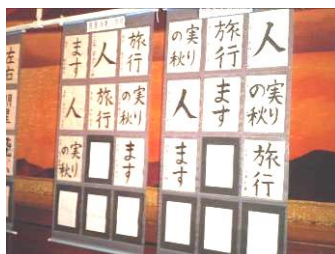 左右
ます
人
旅行
人
旅行
実り
の秋
実り
の秋
ます
実り
の秋
旅行
人
人
ます
実り
の秋
ます
旅行